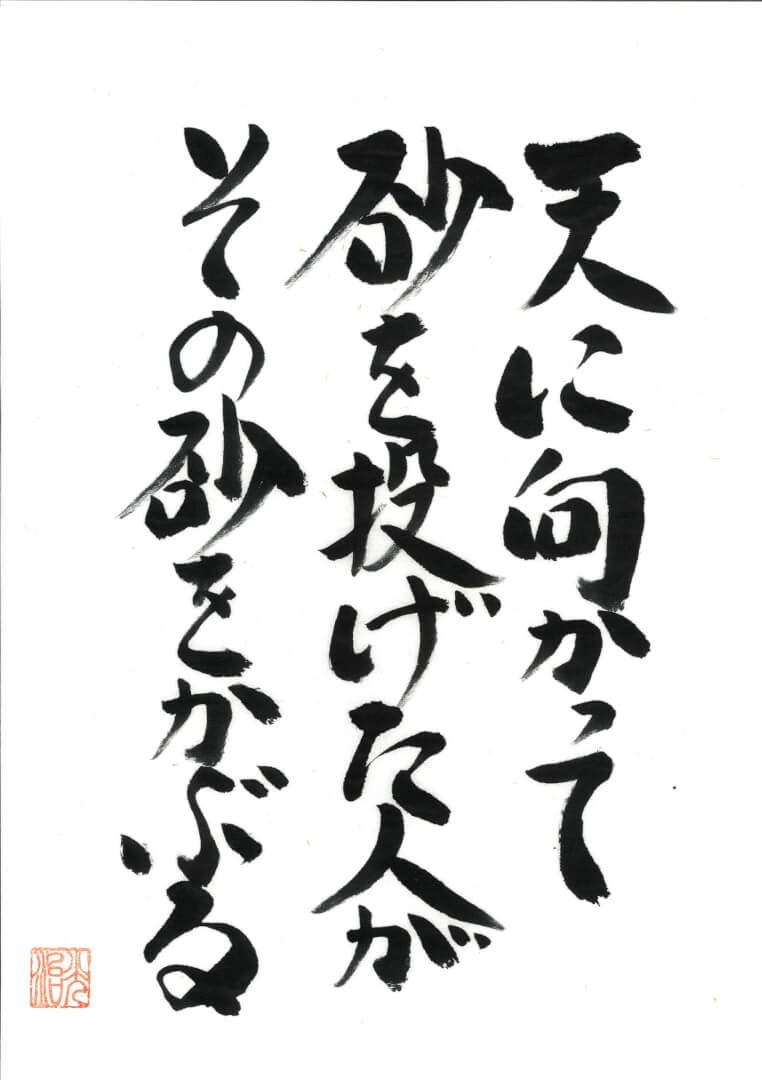 天に向かって
砂を投げた人が
その砂をかぶる